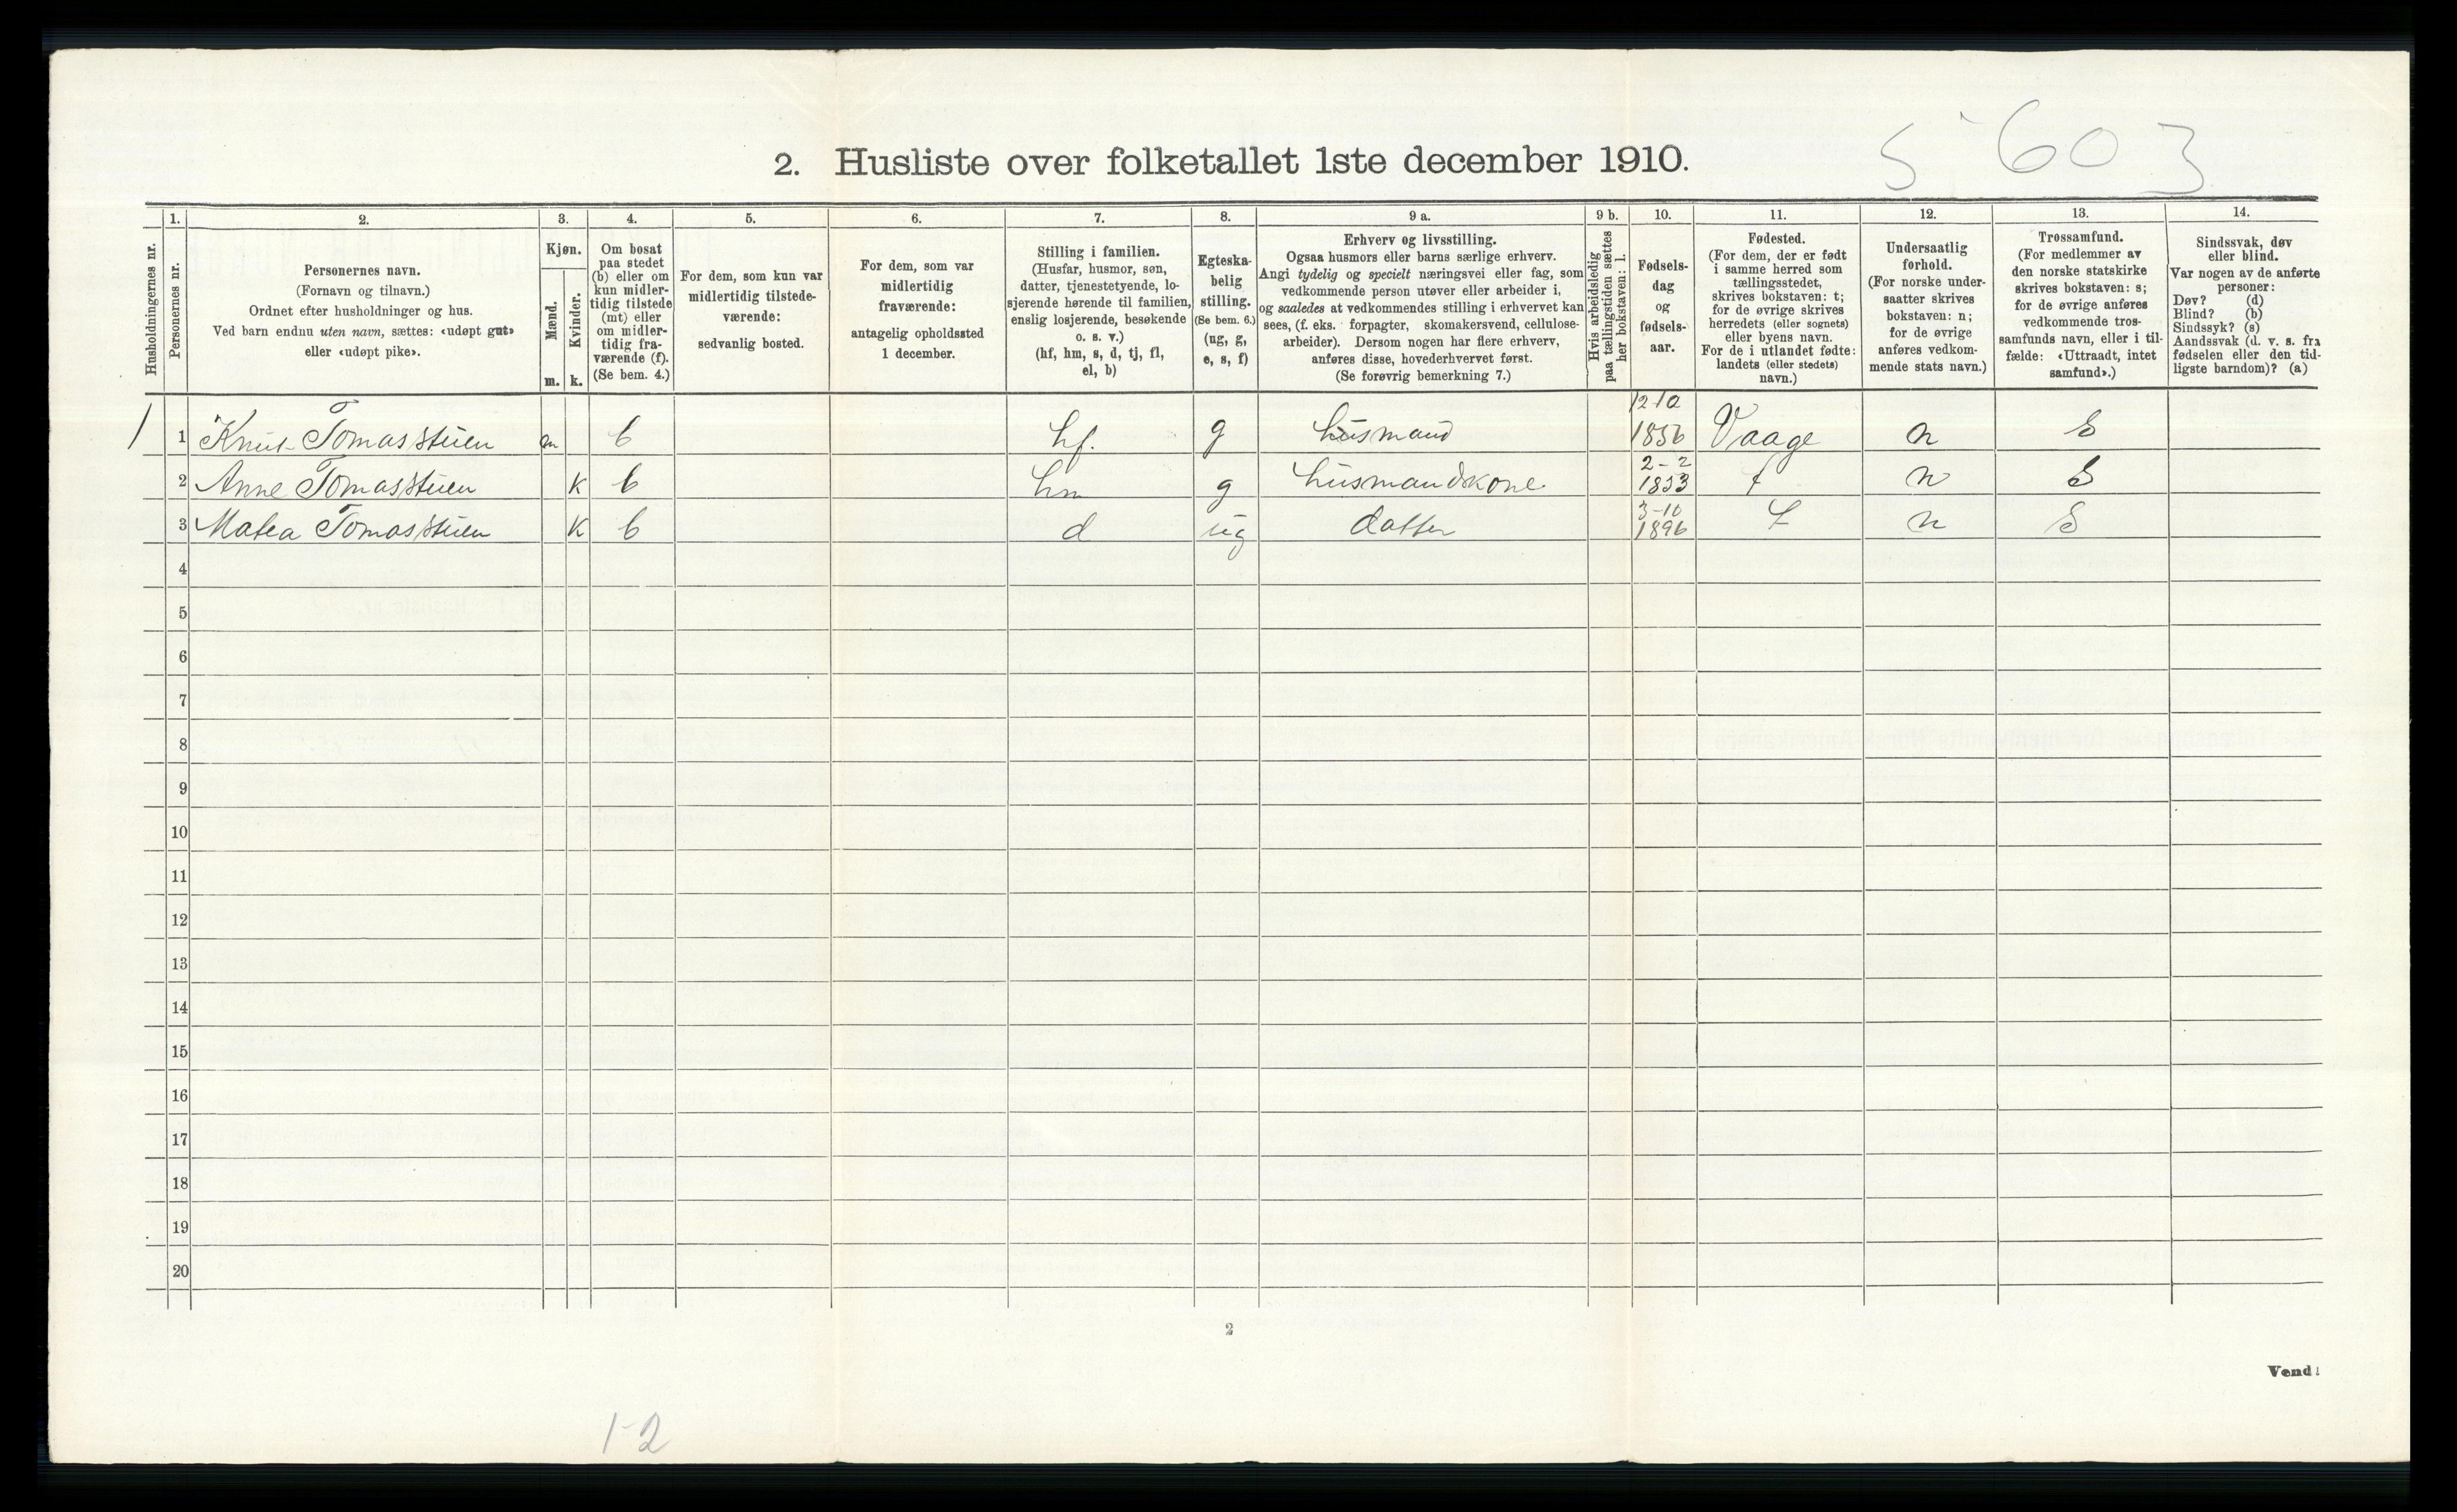 5 603
2. Husliste over folketallet 1ste december 1910.
Husholdningernes nr.
1. Personernes nr.
2. Personernes navn.
(Fornavn og tilnavn.)
Ordnet efter husholdninger og hus.
Ved barn endnu uten navn, sættes: «udøpt gut»
eller «udøpt pike».
3. Kjøn.
Mænd. m.
Kvinder. k.
4. Om bosat
paa stedet
(b) eller om
kun midler-
tidig tilstede
(mt) eller
om midler-
tidig fra-
værende (f).
(Se bem. 4.)
5. For dem, som kun var
midlertidig tilstede-
værende:
sedvanlig bosted.
6. For dem, som var
midlertidig
fraværende:
antagelig opholdssted
1 december.
7. Stilling i familien.
(Husfar, husmor, søn,
datter, tjenestetyende, lo-
sjerende hørende til familien,
enslig losjerende, besøkende
o. s. v.)
(hf, hm, s, d, tj, fl,
el, b)
8. Egteska-
belig
stilling.
(Se bem. 6.)
(ug, g,
e, s, f)
9 a. Erhverv og livsstilling.
Ogsaa husmors eller barns særlige erhverv.
Angi tydelig og specielt næringsvei eller fag, som
vedkommende person utøver eller arbeider i,
og saaledes at vedkommendes stilling i erhvervet kan
sees, (f. eks. forpagter, skomakersvend, cellulose-
arbeider). Dersom nogen har flere erhverv,
anføres disse, hovederhvervet først.
(Se forøvrig bemerkning 7.)
9 b. Hvis arbeidsledig
paa tællingstiden sættes
her bokstaven: l.
10. Fødsels-
dag
og
fødsels-
aar.
11. Fødested.
(For dem, der er født
i samme herred som
tællingsstedet,
skrives bokstaven: t;
for de øvrige skrives
herredets (eller sognets)
eller byens navn.
For de i utlandet fødte:
landets (eller stedets)
navn.)
12. Undersaatlig
forhold.
(For norske under-
saatter skrives
bokstaven: n;
for de øvrige
anføres vedkom-
mende stats navn.)
13. Trossamfund.
(For medlemmer av
den norske statskirke
skrives bokstaven: s;
for de øvrige anføres
vedkommende tros-
samfunds navn, eller i til-
fælde: «Uttraadt, intet
samfund».)
14. Sindssvak, døv
eller blind.
Var nogen av de anførte
personer:
Døv? (d)
Blind? (b)
Sindssyk? (s)
Aandssvak (d. v. s. fra
fødselen eller den tid-
ligste barndom)? (a)
1 1 Knut Tomasstuen m b hf. g husmand 12-10 1856 Vaage n S
2 Anne Tomasstuen k b hm g husmandskone 2-2 1853 t n S
3 Matea Tomasstuen k b d ug datter 3-10 1896 t n S
4
5
6
7
8
9
10
11
12
13
14
15
16
17
18
19
20
2
Vend!
1-2